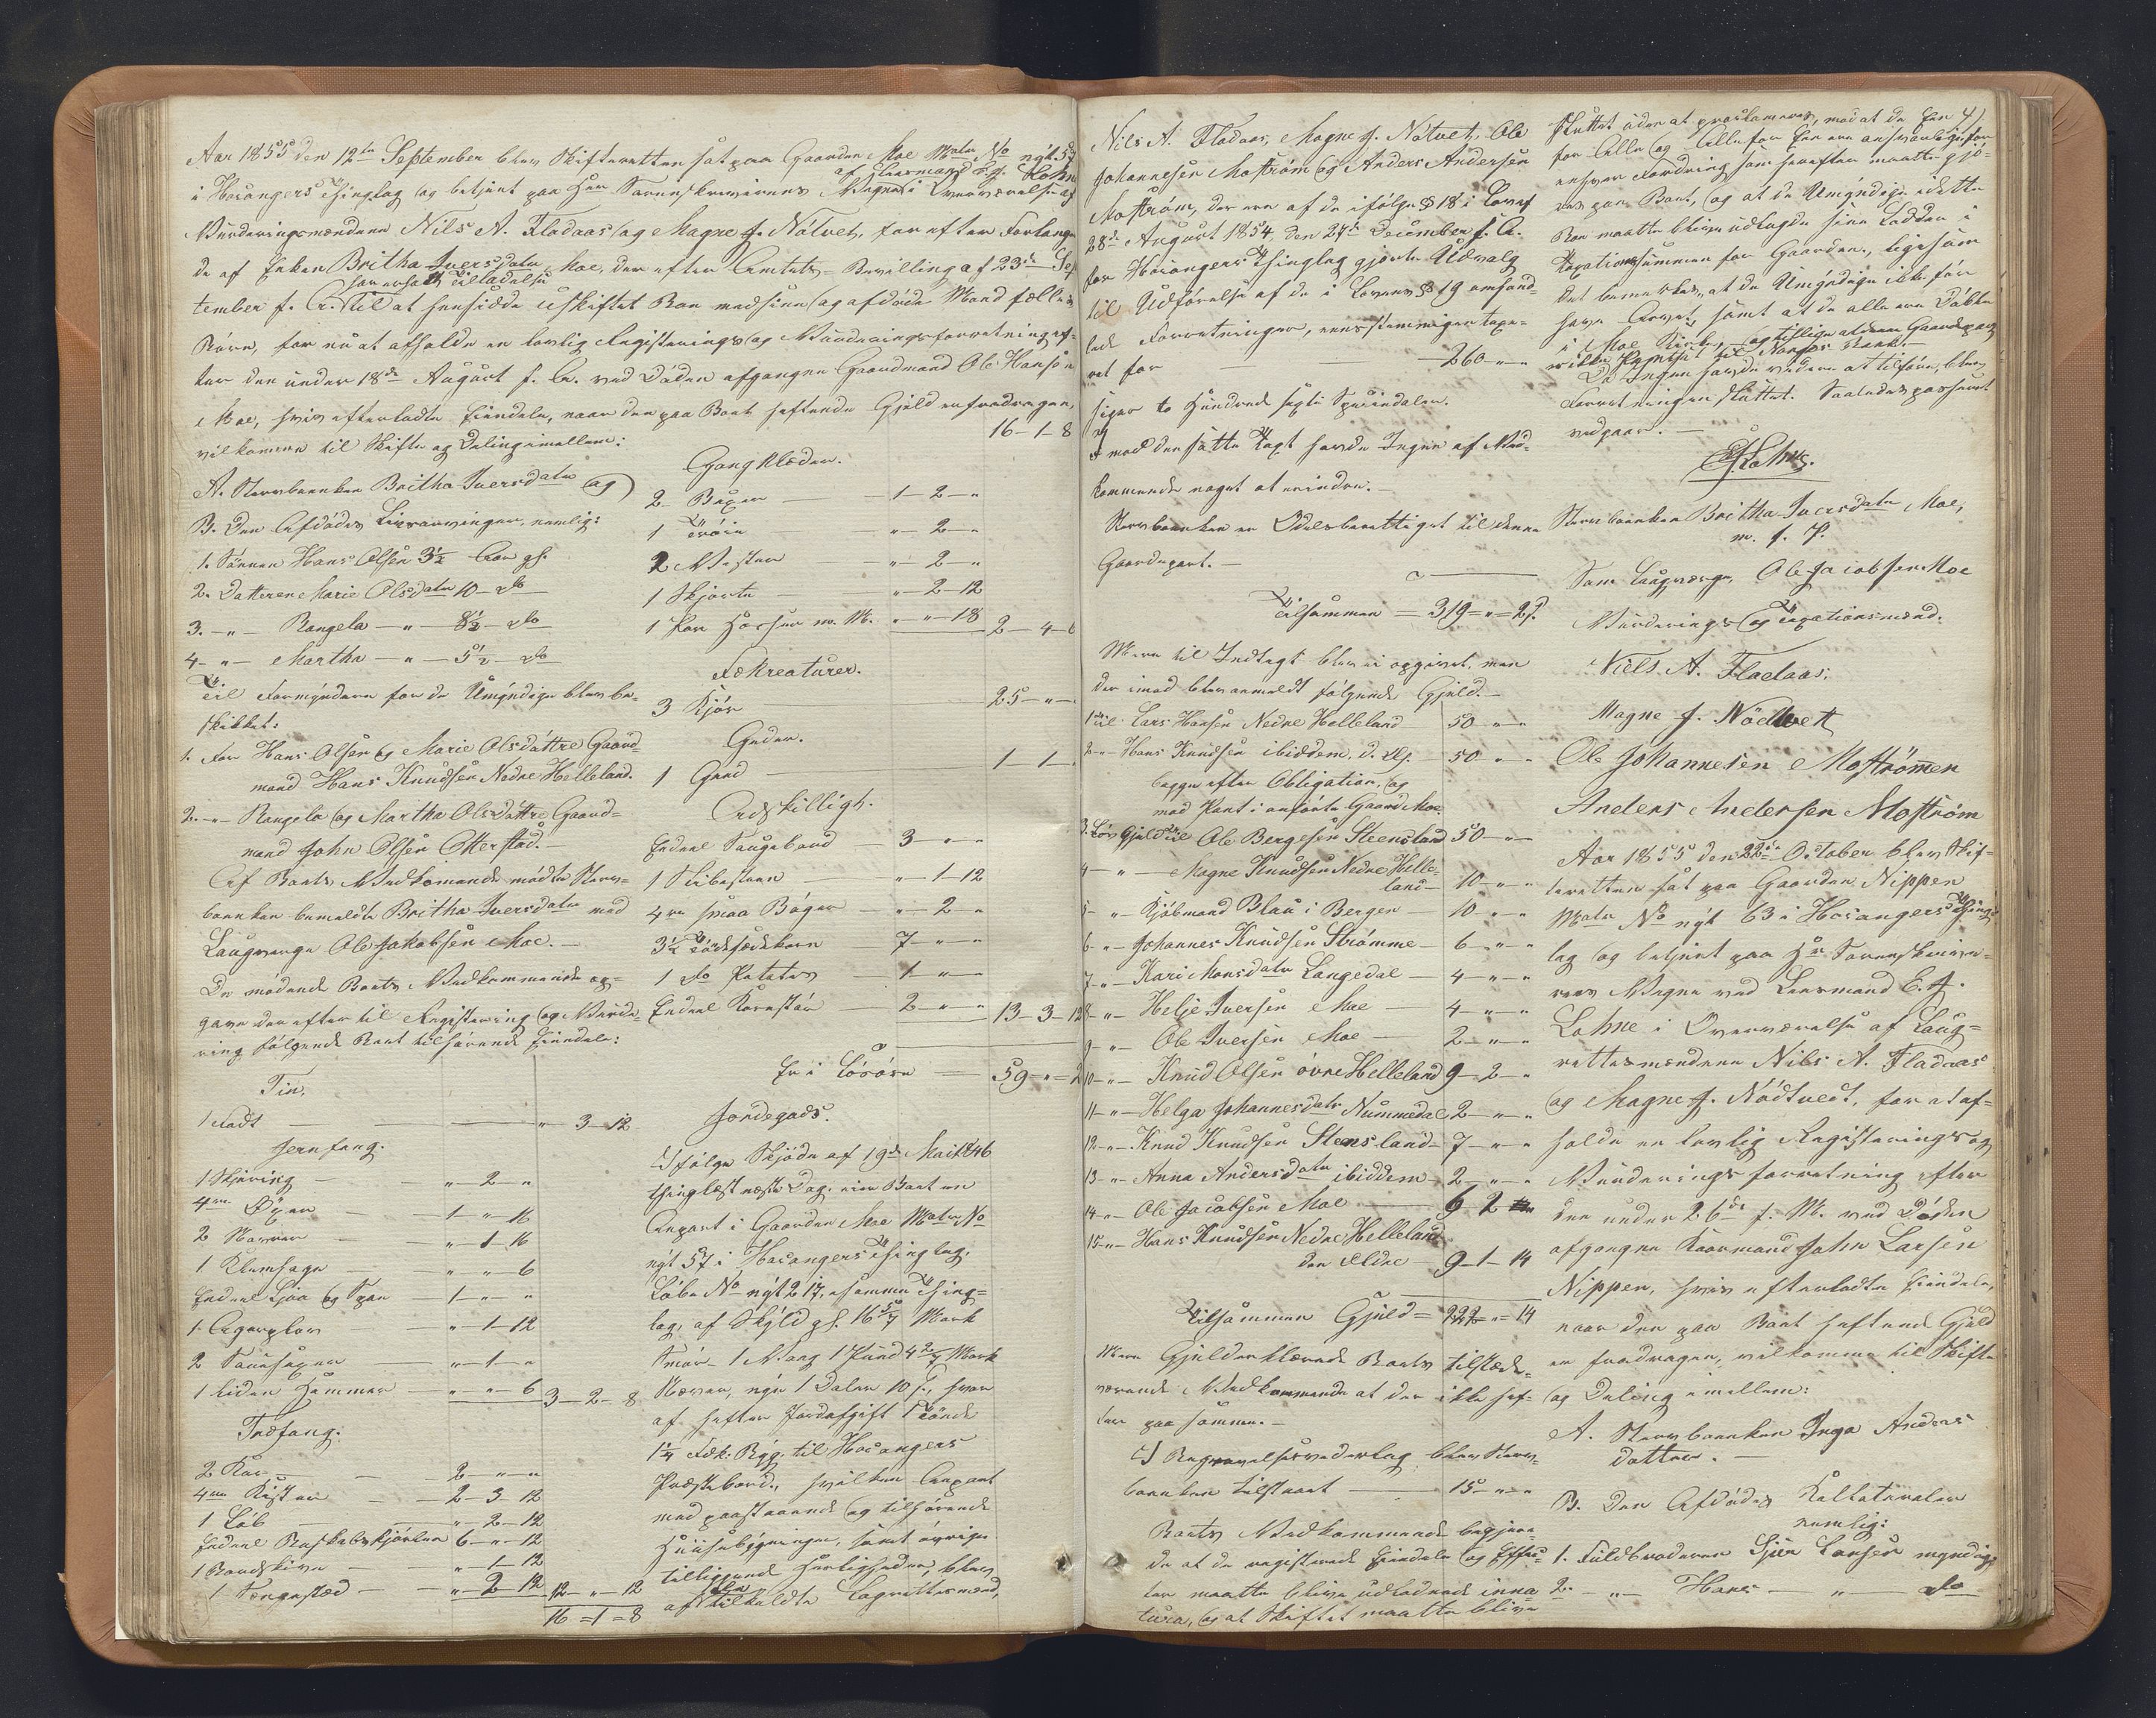 Aar 1855 den 12te September blev Skifteretten sat paa Gaarden Moe Matr No nyt 57
af Lensmand E. J. Lohne
i Hosangers Thinglag og betjent paa Hr Sorenskriverens Vegne i Overværelse af
Vurderingsmændene Nils A. Fladaas og Magne J. Nötvet, for efter Forlangende
de af Enken Britha Iversdatr Moe, der efter Amtets-Bevilling af 23de Sep
har erholdt Tilladelse
tember f. A. til at hensidde i uskiftet Boe med sine og afdøde Mand fælles
Börn, for nu at afholde en lovlig Registerings og Vurderingsforretning ef-
ter den under 18de August f. A. ved Döden afgangne Gaardmand Ole Hansen
Moe, hvis efterladte Eiendele, naar den paa Boet heftende Gjeld er fradragen,
vilkommer til Skifte og Deling imellem:
A. Stervboenken Britha Iversdatr og
B. Den Afdödes Livsarvinger, nemlig:
1. Sønnen Hans Olsen 3½ Aar gl.
2. Datteren Marie Olsdatr 10 – do
3. – " – Rangela – " – 8½ – do
4 – " – Martha – " – 5½ – do
Til Formyndere for de Umyndige blev be-
skikket:
1. For Hans Olsen og Marie Olsdattre Gaard-
mand Hans Knudsen Nedre Helleland.
2. – " – Rangela og Martha Olsdattre Gaard-
mand John Olsen Otterstad. –
Af Boets Vedkommende mødte Sterv-
boenken bemeldte Britha Iversdatr med
Laugværge Ole Jakobsen Moe. –
De mødende Boets Vedkommende op-
gave derefter til Registering og Vurde-
ring følgende Boet tilhørende Eiendele:
Tin.
1 Fadt — " – 3 – 12
Jernfang.
1 Skjæring — " – 2 – "
4re Öxer — 1 – " – 16
2 Navrer — " – 1 – 16
1 Klemsage — " – " – 6
Endeel Ljaa og Span — 1 – " – "
1 Agerplov — " – 1 – 12
2 Sauesaxer — " – 1 – "
1 liden Hammer — " – " – 6 3 – 2 – 8
Træfang.
2 Kar — 2 – " – "
4re Kister — 2 – 3 – 12
1 Löb — " – 2 – 12
Endeel Buskabskjörler 6 – " – 12
1 Bordskive — " – 1 – 12
1 Sengested — " – 2 – 12 12 – " – 12
16 = 1 = 8
16 – 1 – 8
Gangklæder.
2 Buxer — 1 – 2 – "
1 Tröie — " – 2 – "
2 Vester — " – 2 – "
1 Skjorte — " – 2 – 12
1 Par Hoser m. M. " – " – 18 2 – 4 – 6
Fækreaturer.
3 Kjör 25 – " – "
Geder.
1 Geed — 1 – 1 – "
Adskilligt.
Endeel Saugebord — 3 – " – "
1 Slibesteen — " – 1 – 12
4re smaa Böger — " – 2 – "
3½ Tönde Sædekorn 7 – " – "
1 do Potetes — 1 – " – "
Endeel Kornstör — 2 – " – " 13 – 3 – 12
Er i Lösöre — 59 = " = 2
Jordegods.
Ifölge Skjöde af 19de Mai 1846
thinglæst næste Dag, eier Boet en
Anpart i Gaarden Moe Matr No
nyt 57 i Hosangers Thinglag,
Löbe No nyt 217, samme Thing-
lag, af Skyld gl. 16 5/7 Mark
Smör 1 Mæng 1 Pund 4 2/7 Mark
Næver, nye 1 Daler 10 ß., hvor
af hefter Jordafgift 1 Tönde
1¼ Fdk. Byg, til Hosangers
Præstebord, hvilken Anpart
med paastaaende og tilhørende
Huusebygninger, samt övrige
tilliggende Herligheder, blev
af de tilkaldte Lagrettesmænd,
Nils A. Fladaas, Magne J. Nötvet, Ole
Johannesen Moström og Anders Andersen
Moström, der ere af de ifölge § 18 i Lov af
28de August 1854, den 27de December f. A.
for Hosangers Thinglag gjorte Udvalg
til Udförelse af de i Lovens § 19 omhand-
lede Forretninger, eenstemmigen taxe-
ret for — 260 – " – "
siger to Hundrede sexti Speciedaler.
Imod den satte Taxt havde Ingen af Ved-
kommende noget at erindre. –
Stervboenken er Odelsberettiget til denne
Gaardepart. –
Tilsammen = 319 = " = 2 ß.
Mere til Indtægt blev ei opgivet, men
derimod blev anmeldt fölgende Gjeld. –
1 til Lars Hansen Nedre Helleland 50 – " – "
2 – " – Hans Knudsen ibiddem, d. æ. 50 – " – "
begge efter Obligation, og
med Pant i anførte Gaard Moe.
3. Løs Gjeld til Ole Bergesen Steensland 50 – " – "
4 – " – Magne Knudsen Nedre Helle-
land — 10 – " – "
5 – " – Kjöbmand Blau i Bergen — 10 – " – "
6 – " – Johannes Knudsen Strömme — 6 – " – "
7 – " – Kari Monsdatr Langedal — 4 – " – "
8 – " – Helje Iversen Moe — 4 – " – "
9 – " – Ole Iversen Moe — 2 – " – "
10 – " – Knud Olsen övre Helleland 9 – 2 – "
11 – " – Helga Johannesdatr Nummedal 2 – " – "
12 – " – Knud Knudsen Stensland – 7 – " – "
13 – " – Anna Andersdatr ibiddem – 2 – " – "
14 – " – Ole Jacobsen Moe — 6 – 2 –
15 – " – Hans Knudsen Nedre Helleland
den Eldre — 9 – 1 – 14
Tilsammen Gjeld = 222 = " = 14
Mere Gjeld erklærede Boets tilstede-
værende Vedkommende at der ikke hef-
ter paa samme. –
I Begravelsesvederlag blev Sterv-
boenken tilstaaet — 15 – " – "
Boets Vedkommende begjære-
de at de registerede Eiendele og Effec-
ter maatte blive udlodnede inna
tura, og at Skiftet maatte blive
4)
sluttet uden at proclameres, mod at de Een
for Alle og Alle for Een ere ansvarlige for
enhver Fordring som herefter maatte gjö-
res paa Boet, og at de Umyndige idette
Boe maatte blive udlagte sine Lodder i
Taxationssummen for Gaarden, ligesom
det bemærkes, at de Umyndige ikke för
have Arvet, samt at de alle ere Døbte
i Moe Kirke,
Da Ingen havde videre at tilføre, blev
Forretningen sluttet. Saaledes passeret
vedgaaer. –
E J Lohne.
Stervboenken Britha Iversdatr Moe,
m. f. P.
Som Laugværge, Ole Jacobsen Moe
Vurderings og Taxationsmænd.
Niels A. Fladaas.
Magne J. Nödtvett
Ole Johannesen Moströmen
Anders Andersen Moström
Aar 1855 den 22de October blev Skif-
teretten sat paa Gaarden Nippen
Matr No nyt 63 i Hosangers Thing-
lag og betjent paa Hr Sorenskrive-
rens Vegne ved Lensmand E. J.
Lohne i Overværelse af Laug-
rettesmændene Nils A. Fladaas
og Magne J. Nödtvedt, for at af-
holde en lovlig Registerings og
Vurderingsforretning efter
den under 26de f. M. ved Döden
afgangne Kaarmand John Larsen
Nippen, hvis efterladte Eiendele,
naar den paa Boet heftende Gjeld
er fradragen, vilkommer til Skifte
og Deling imellem:
A. Stervboenken Inga Anders
datter. –
B. Den Afdödes Kollateraler
nemlig:
1. Fuldbroderen Sjur Larsen myndig
2. – " – Hans – " – do